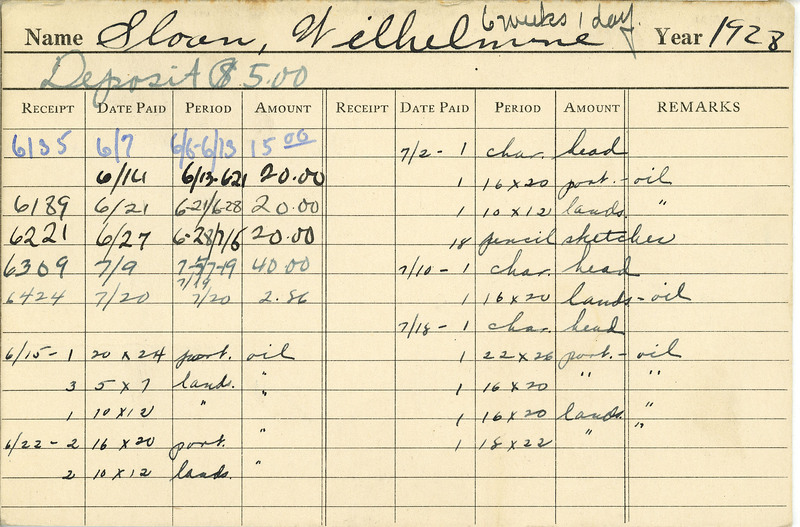 6 weeks 1 day.
Name Sloan, Wilhelmine Year 1928
Deposit $5.00
RECEIPT DATE PAID PERIOD AMOUNT RECEIPT DATE PAID PERIOD AMOUNT REMARKS
6135 6/7 6/6-6/13 15 00
7/2- 1 char. head
6/14 6/13-621 20.00
1 16 x 20 port. - oil
6189 6/21 6-21/6-28 20.00
1 10 x 12 lands. "
6221 6/27 6-28/7/5 20.00
18 pencil sketches
6309 7/9 7-5/7-19 40.00
7/10- 1 char. head
6424 7/20 7/19 7/20 2.86
1 16 x 20 lands - oil
7/18- 1 char. head
6/15- 1 20 x 24 port. oil
1 22 x 26 port. - oil
3 5 x 7 land. "
1 16 x 20 " "
1 10 x 12 " "
1 16 x 20 lands. "
6/22- 2 16 x 20 port. "
1 18 x 22 " "
2 10 x 12 lands. "